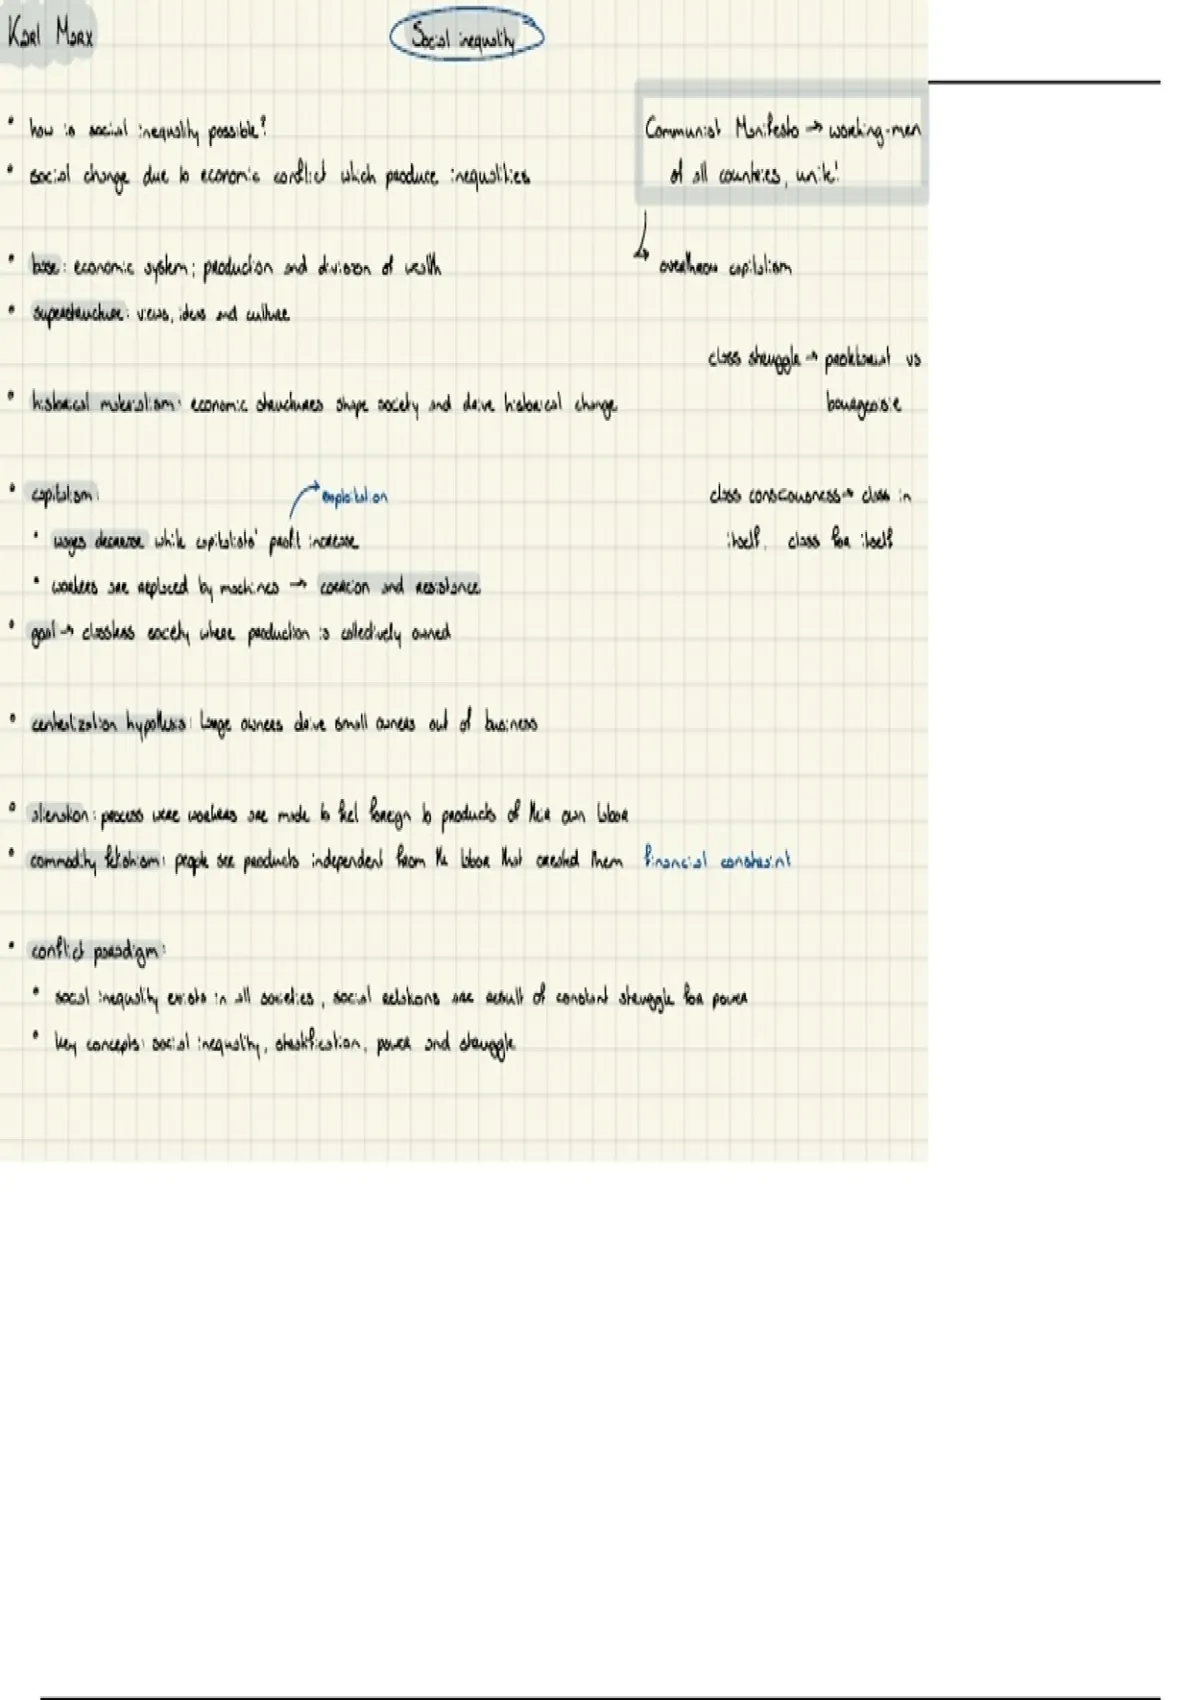 Karl Marx
Social inequality
• how is social inequality possible?
• social change due to economic conflict which produce inequalities
Communist Manifesto → working-men
of all countries, unite!
→ overthrow capitalism
• base: economic system; production and division of wealth
• superstructure: views, ideas and culture
class struggle → proletariat vs
bourgeoisie
• historical materialism: economic structures shape society and drive historical change
• capitalism:
→ exploitation
• wages decrease while capitalists' profit increase
• workers are replaced by machines → coercion and resistance
class consciousness → class in
itself, class for itself
• goal → classless society where production is collectively owned
• centralization hypothesis: large owners drive small owners out of business
• alienation: process were workers are made to feel foreign to products of their own labor
• commodity fetishism: people see products independent from the labor that created them financial constraint
• conflict paradigm:
• social inequality exists in all societies, social relations are result of constant struggle for power
• key concepts: social inequality, stratification, power and struggle